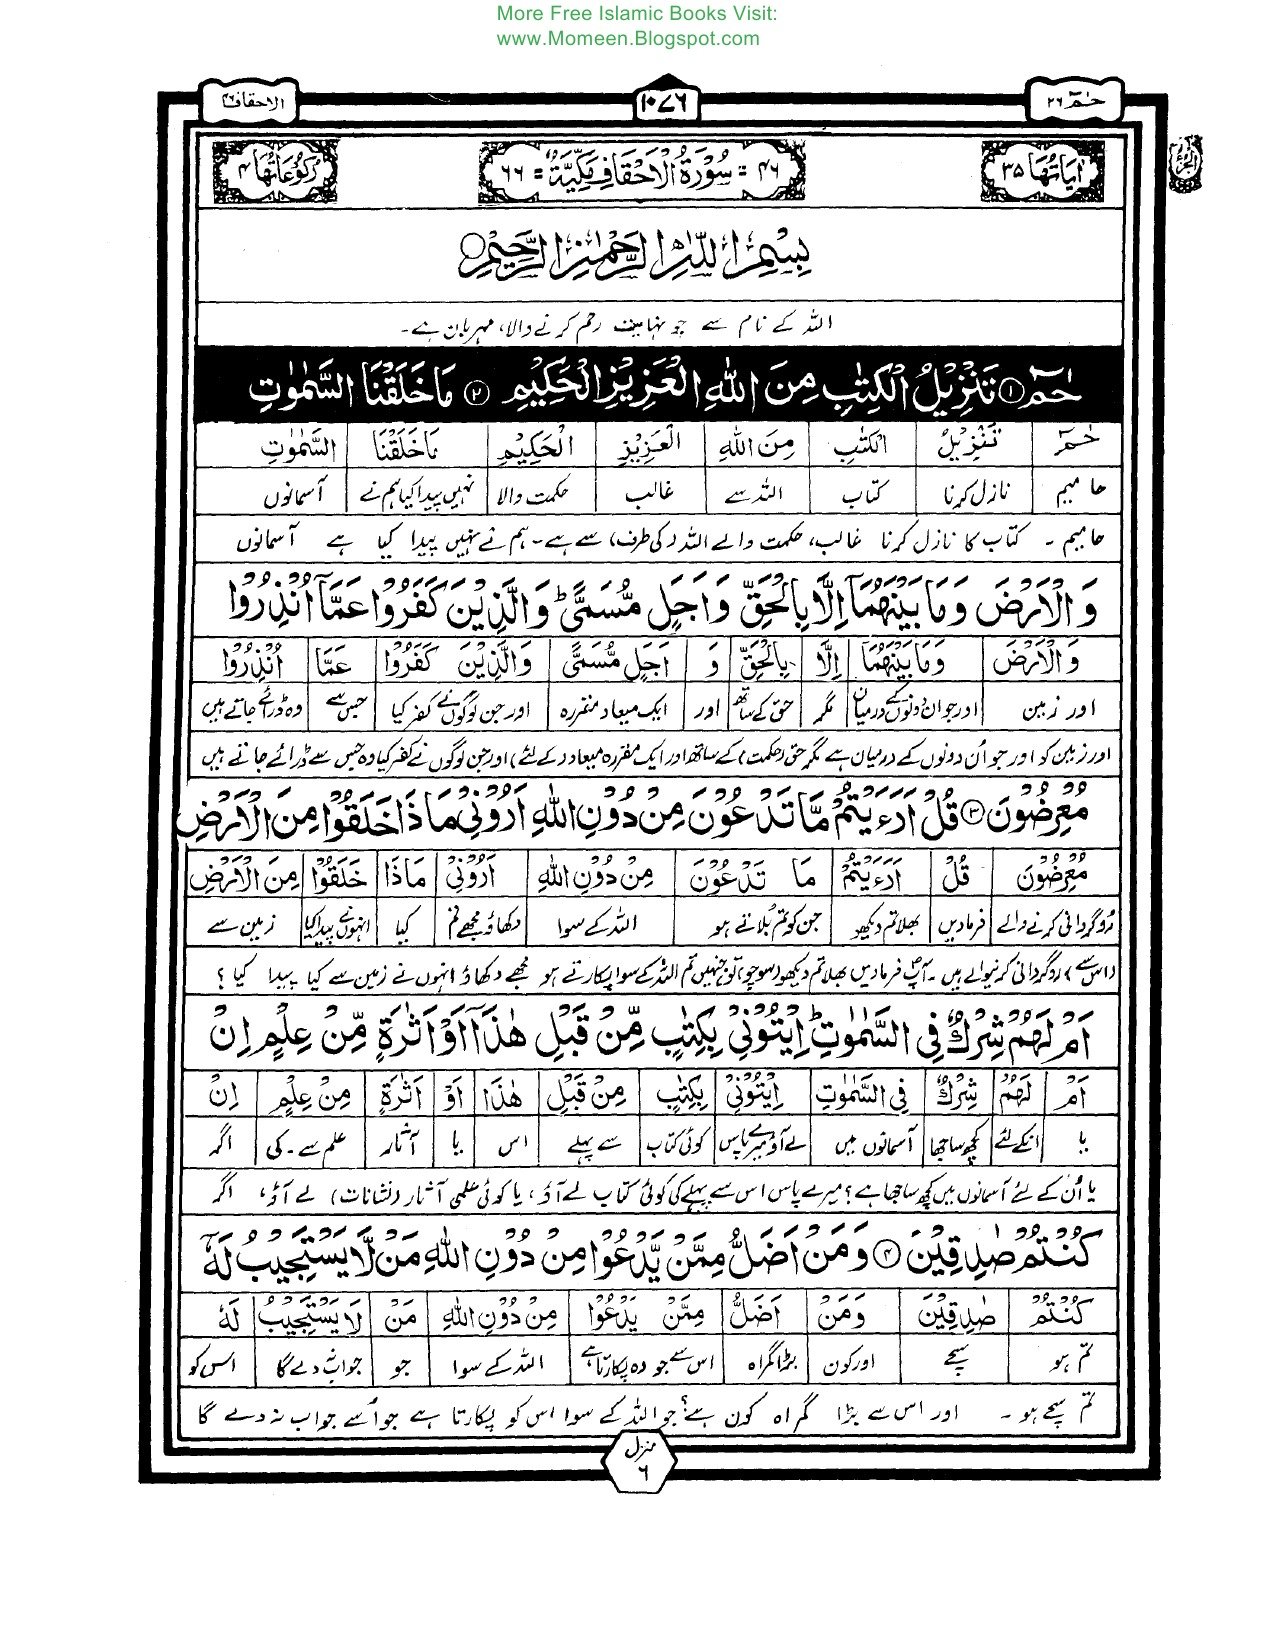 More Free Islamic Books Visit:
www.Momeen.Blogspot.com
حٰمٓ ٢٦
١٠٧٦
الاحقاف ٤٦
اٰیَاتُهَا ٣٥
٤٦ = سُوْرَةُ الْاَحْقَافِ مَكِّیَّةٌ = ٦٦
رُكُوْعَاتُهَا ٤
بِسْمِ اللّٰهِ الرَّحْمٰنِ الرَّحِیْمِ
اللہ کے نام سے جو نہایت رحم کرنے والا، مہربان ہے۔
حٰمٓ ١ تَنْزِیْلُ الْكِتٰبِ مِنَ اللّٰهِ الْعَزِیْزِ الْحَكِیْمِ ٢ مَا خَلَقْنَا السَّمٰوٰتِ
حٰمٓ تَنْزِیْلُ الْكِتٰبِ مِنَ اللّٰهِ الْعَزِیْزِ الْحَكِیْمِ مَا خَلَقْنَا السَّمٰوٰتِ
حا میم نازل کرنا کتاب اللہ سے غالب حکمت والا نہیں پیدا کیا ہم نے آسمانوں
حا میم ۔ کتاب کا نازل کرنا غالب، حکمت والے اللہ (کی طرف) سے ہے۔ ہم نے نہیں پیدا کیا ہے آسمانوں
وَالْاَرْضَ وَمَا بَیْنَهُمَاۤ اِلَّا بِالْحَقِّ وَاَجَلٍ مُّسَمًّی ؕ وَالَّذِیْنَ كَفَرُوْا عَمَّاۤ اُنْذِرُوْا
وَالْاَرْضَ وَمَا بَیْنَهُمَاۤ اِلَّا بِالْحَقِّ وَ اَجَلٍ مُّسَمًّی وَالَّذِیْنَ كَفَرُوْا عَمَّا اُنْذِرُوْا
اور زمین اور جو ان دونوں کے درمیان مگر حق کے ساتھ اور ایک میعاد مقررہ اور جن لوگوں نے کفر کیا جس سے وہ ڈرائے جاتے ہیں
اور زمین کو اور جو اُن دونوں کے درمیان ہے مگر حق (حکمت) کے ساتھ اور ایک مقررہ میعاد (کے لئے) اور جن لوگوں نے کفر کیا وہ جس سے ڈرائے جاتے ہیں
مُعْرِضُوْنَ ٣ قُلْ اَرَءَیْتُمْ مَّا تَدْعُوْنَ مِنْ دُوْنِ اللّٰهِ اَرُوْنِیْ مَاذَا خَلَقُوْا مِنَ الْاَرْضِ
مُعْرِضُوْنَ قُلْ اَرَءَیْتُمْ مَّا تَدْعُوْنَ مِنْ دُوْنِ اللّٰهِ اَرُوْنِیْ مَاذَا خَلَقُوْا مِنَ الْاَرْضِ
رُوگردانی کرنے والے فرمادیں بھلا تم دیکھو جن کو تم بُلاتے ہو اللہ کے سوا دکھاؤ مجھے تم کیا انہوں نے پیدا کیا زمین سے
(اس سے) روگردانی کرنیوالے ہیں ۔ آپؐ فرمادیں بھلا تم دیکھو (سوچو) تو جنہیں تم اللہ کے سوا پکارتے ہو مجھے دکھاؤ انہوں نے زمین سے کیا پیدا کیا ؟
اَمْ لَهُمْ شِرْكٌ فِی السَّمٰوٰتِ ؕ اِیْتُوْنِیْ بِكِتٰبٍ مِّنْ قَبْلِ هٰذَاۤ اَوْ اَثٰرَةٍ مِّنْ عِلْمٍ اِنْ
اَمْ لَهُمْ شِرْكٌ فِی السَّمٰوٰتِ اِیْتُوْنِیْ بِكِتٰبٍ مِّنْ قَبْلِ هٰذَا اَوْ اَثٰرَةٍ مِنْ عِلْمٍ اِنْ
یا انکے لئے کچھ ساجھا آسمانوں میں لے آؤ میرے پاس کوئی کتاب سے پہلے اس یا آثار علم سے ۔ کی اگر
یا اُن کے لئے آسمانوں میں کچھ ساجھا ہے ؟ میرے پاس اس سے پہلے کی کوئی کتاب لے آؤ ، یا کوئی علمی آثار (نشانات) لے آؤ ، اگر
كُنْتُمْ صٰدِقِیْنَ ٤ وَمَنْ اَضَلُّ مِمَّنْ یَّدْعُوْا مِنْ دُوْنِ اللّٰهِ مَنْ لَّا یَسْتَجِیْبُ لَهٗۤ
كُنْتُمْ صٰدِقِیْنَ وَمَنْ اَضَلُّ مِمَّنْ یَدْعُوْا مِنْ دُوْنِ اللّٰهِ مَنْ لَا یَسْتَجِیْبُ لَهٗ
تم ہو سچے اور کون بڑا گمراہ اس سے جو وہ پکارتا ہے اللہ کے سوا جو جواب نہ دے گا اس کو
تم سچے ہو ۔ اور اس سے بڑا گمراہ کون ہے؟ جو اللہ کے سوا اس کو پکارتا ہے جو اُسے جواب نہ دے گا
منزل
٦